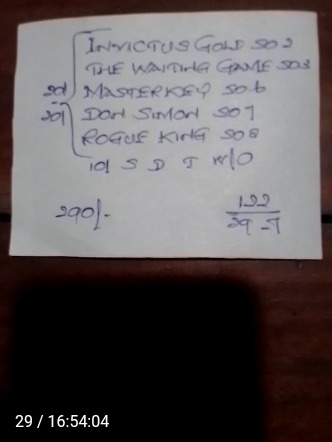 INVICTUS GOLD 502
THE WAITING GAME 503
20/ MASTER KEY 506
20/ DON SIMON 507
ROGUE KING 508
10/ S D T W/O
290/-
122
29-7
29 / 16:54:04